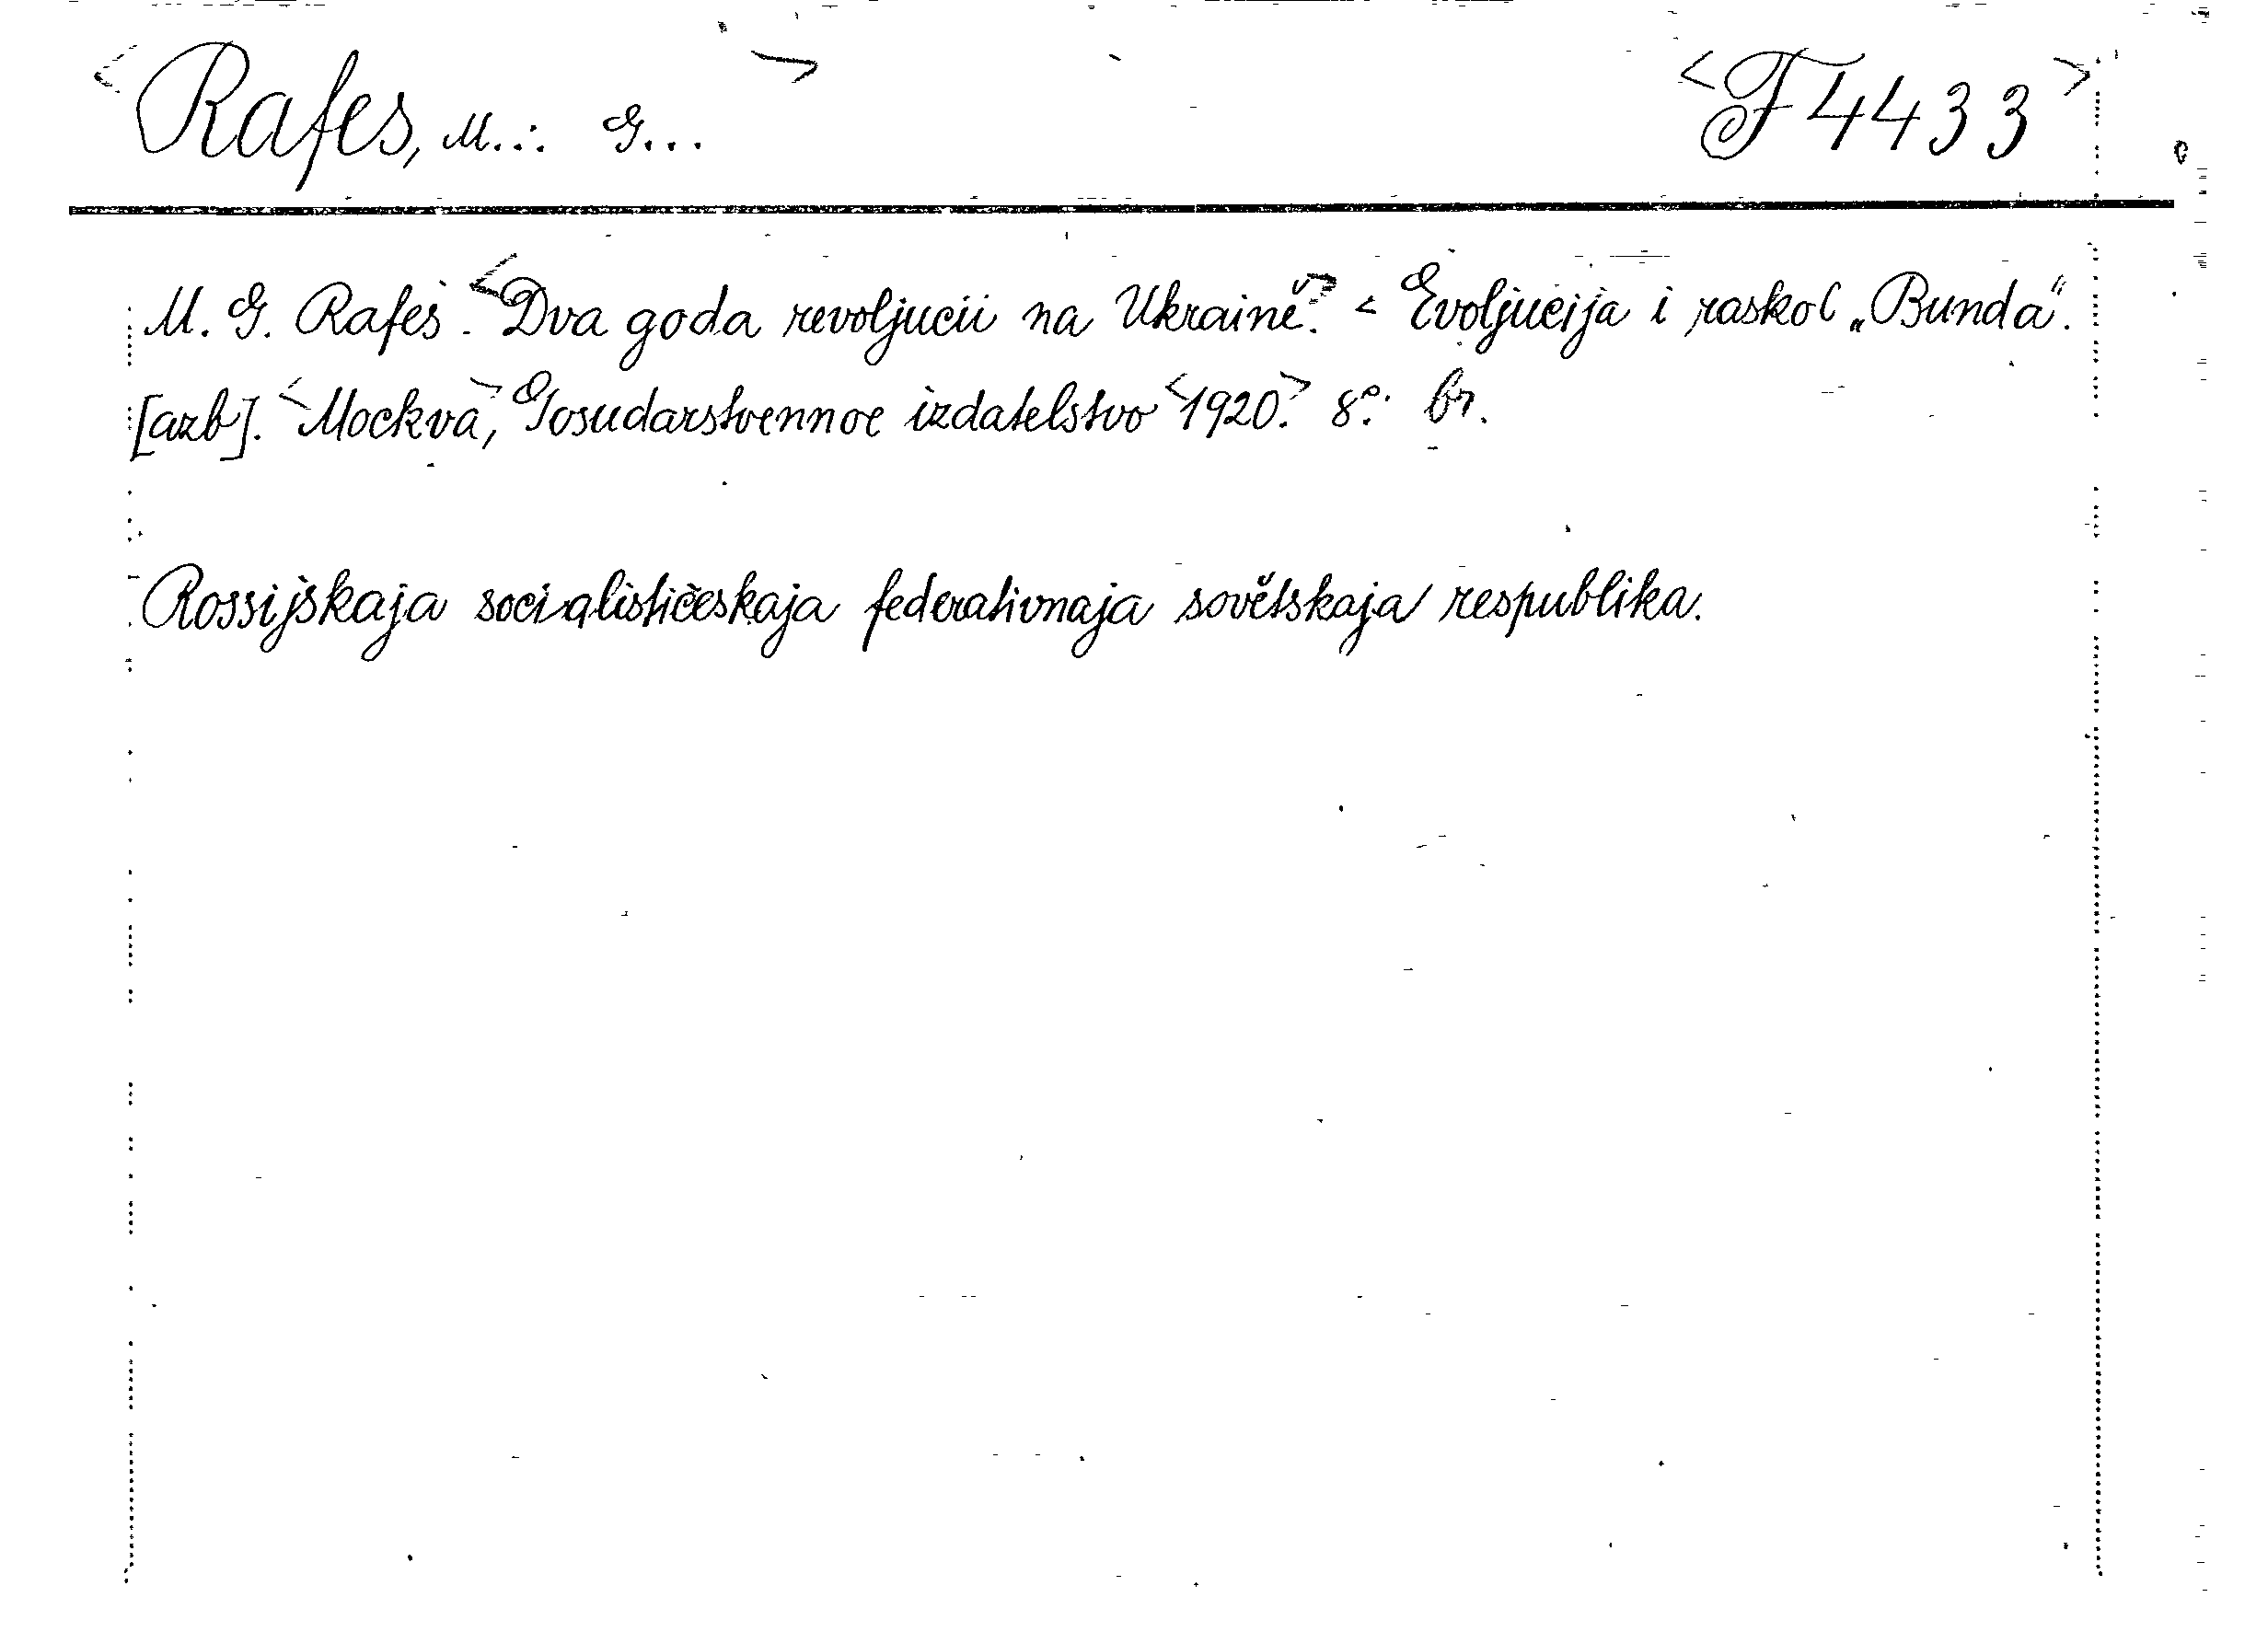 <Rafes, M... G...> <F 4433>
M. G. Rafes. <Dva goda revoljucii na Ukraině.> < Evoljucija i raskol „Bunda“.
[azb]. <Mockva>, Gosudarstvennoe izdatelstvo <1920.> 8°. br.
Rossijskaja socialističeskaja federativnaja sovětskaja respublika.